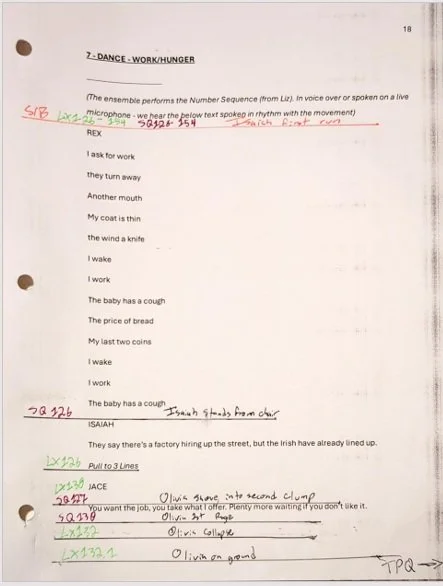 18
7 - DANCE - WORK/HUNGER
(The ensemble performs the Number Sequence (from Liz). In voice over or spoken on a live
microphone - we hear the below text spoken in rhythm with the movement)
S/B LX126 - 154 SQ126 - 154 Isaiah first run
REX
I ask for work
they turn away
Another mouth
My coat is thin
the wind a knife
I wake
I work
The baby has a cough
The price of bread
My last two coins
I wake
I work
The baby has a cough
SQ 126 Isaiah stands from chair
ISAIAH
They say there's a factory hiring up the street, but the Irish have already lined up.
LX126 Pull to 3 Lines
LX130 JACE
SQ127 Olivia shove, into second clump
You want the job, you take what I offer. Plenty more waiting if you don't like it.
SQ130 Olivia 1st
LX132 Olivia collapse
LX132.1 Olivia on ground
TPQ